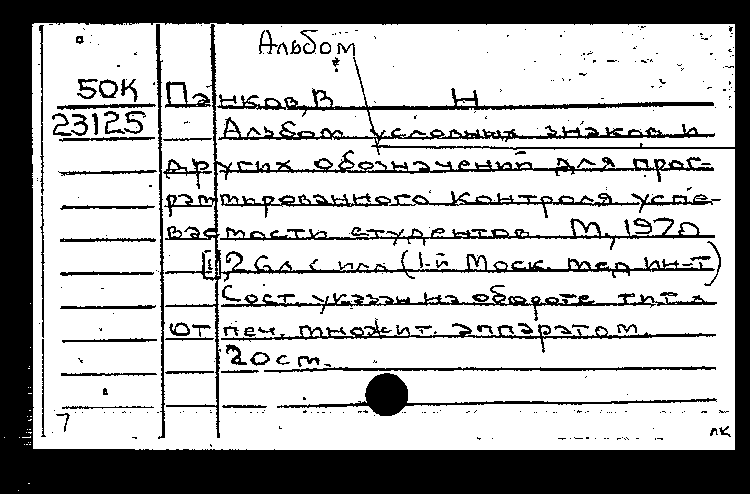 Альбом
50К Панков, В Н
23125 Альбом условных знаков и
других обозначений для прог-
раммированного контроля успе-
ваемости студентов. М., 1970
[1], 26л с илл (1-й Моск. мед ин-т)
Сост. указан на обороте тит л
Отпеч. множит. аппаратом.
20см.
7
лк